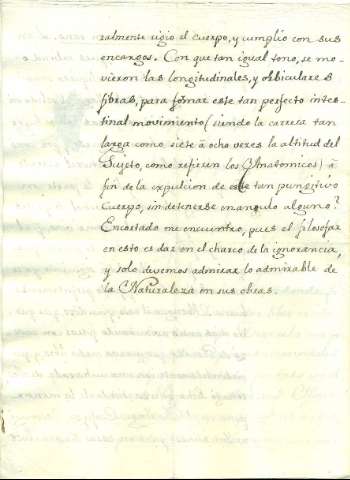 ralmente rigio el cuerpo, y cumplio con sus
encargos. Con que tan igual tono, se mo-
vieron las longitudinales, y orbiculares
fibras, para formar este tan perfecto intes-
tinal movimiento (siendo la carrera tan
larga como siete à ocho veces la altitud del
Sujeto, como refieren los Anatomicos) à
fin de la expulcion de este tan punsitivo
Cuerpo, sin detenerse en angulo alguno?
Encortado me encuentro, pues el filosofar
en esto es dar en el charco de la ignorancia,
y solo devemos admirar lo admirable de
la Naturaleza in sus obras.